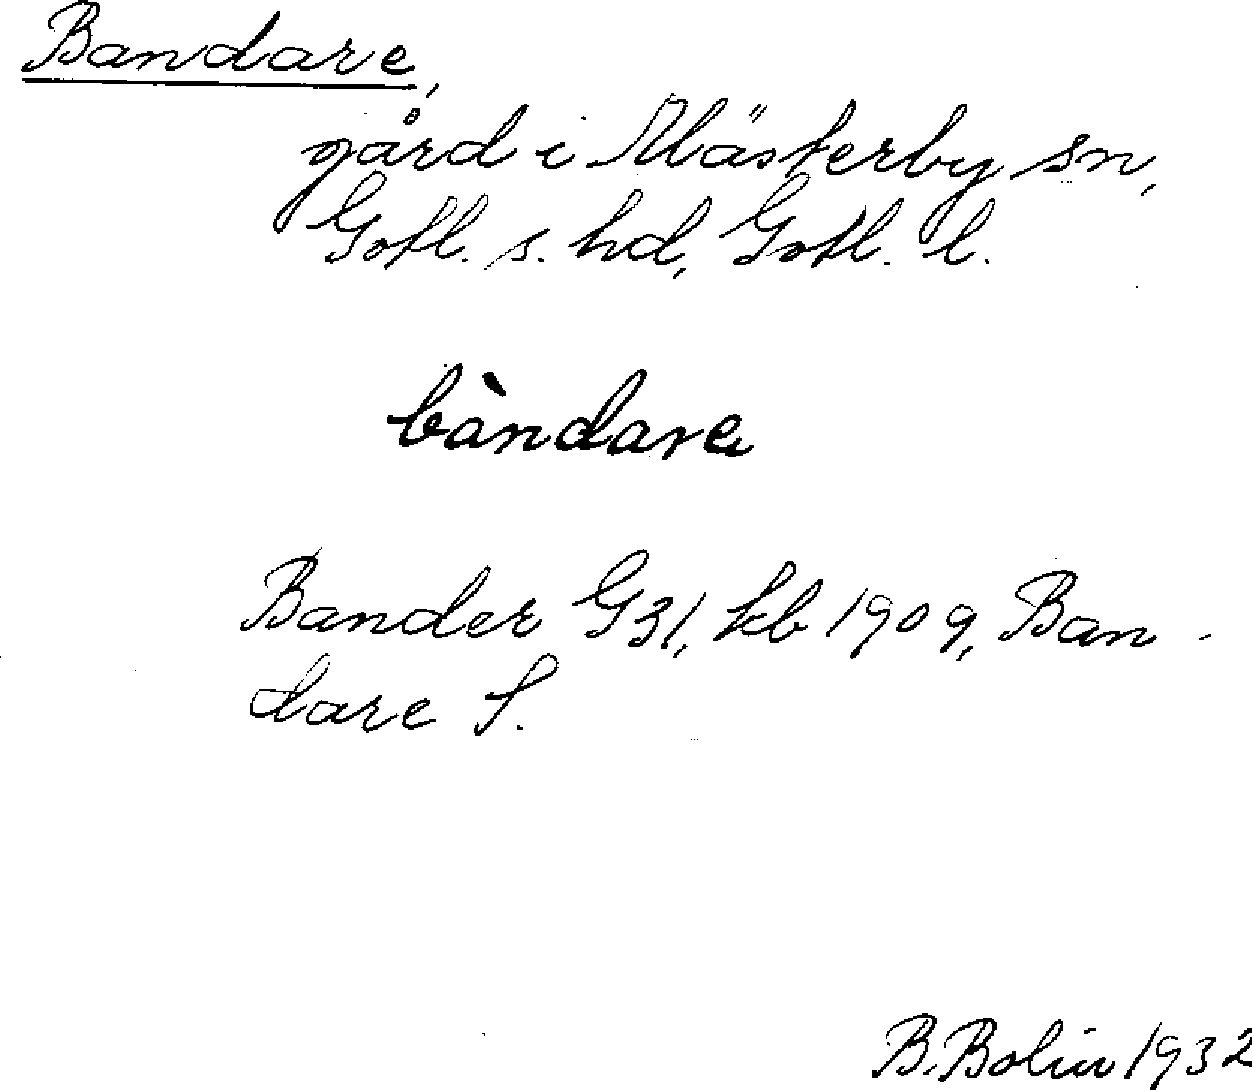 Bandare,
gård i Mästerby sn,
Gotl. s. hd, Gotl. l.
bàndare
Bander G31, kb 1909, Ban-
dare S.
B. Bolin 1932